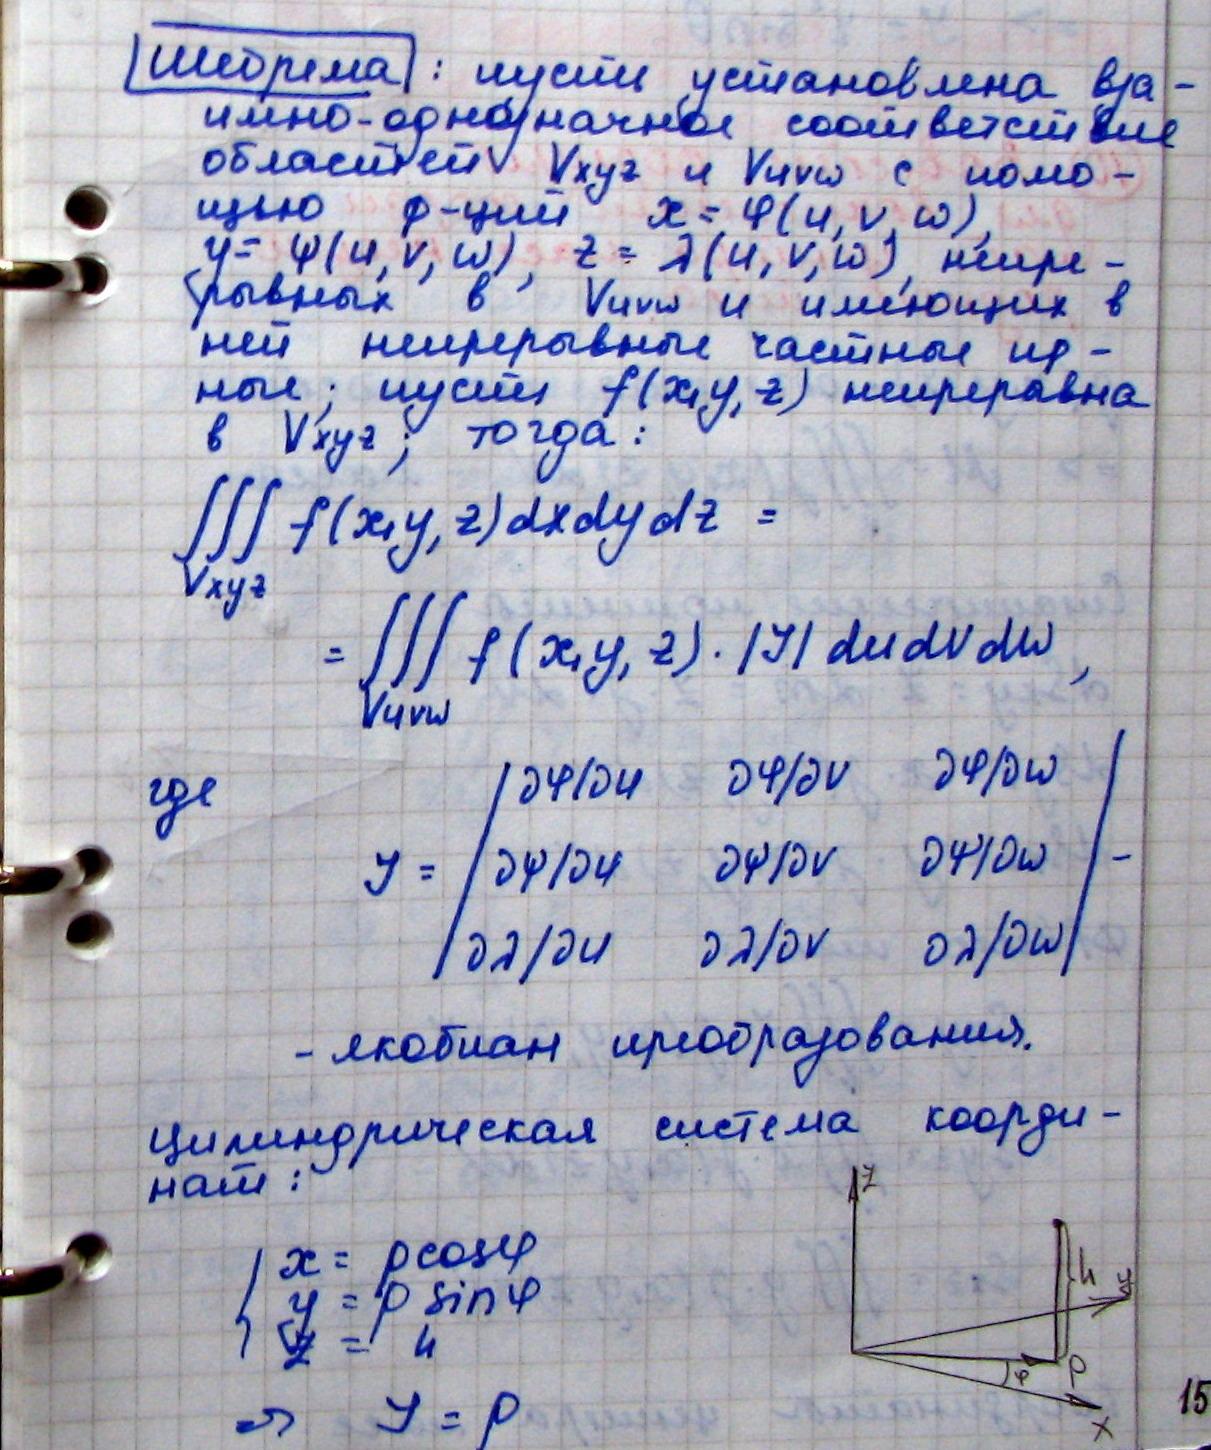 Теорема: пусть установлена вза-
имно-однозначное соответствие
областей Vxyz и Vuvw с помо-
щью ф-ций x = φ(u, v, w),
y = ψ(u, v, w), z = λ(u, v, w), непре-
рывных в Vuvw и имеющих в
ней непрерывные частные пр-
ные; пусть f(x, y, z) непреравна
в Vxyz; тогда:
∭ f(x, y, z) dx dy dz =
Vxyz
= ∭ f(x, y, z) · |J| du dv dw,
Vuvw
где
∂φ/∂u ∂φ/∂v ∂φ/∂w
J = | ∂ψ/∂u ∂ψ/∂v ∂ψ/∂w | -
∂λ/∂u ∂λ/∂v ∂λ/∂w
- якобиан преобразования.
Цилиндрическая система коорди-
нат:
z
x = ρcosφ
y = ρ sinφ
z = h
h
y
ρ
φ
x
⇒ J = ρ
15